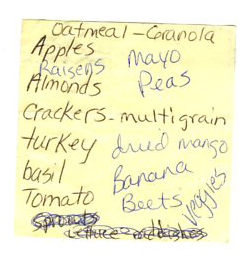 Oatmeal - Granola
Apples
Raisens
Almonds
Mayo
Peas
Crackers - multigrain
turkey
dried mango
basil
Banana
Tomato
Beets
veggies
Sprouts
Lettuce